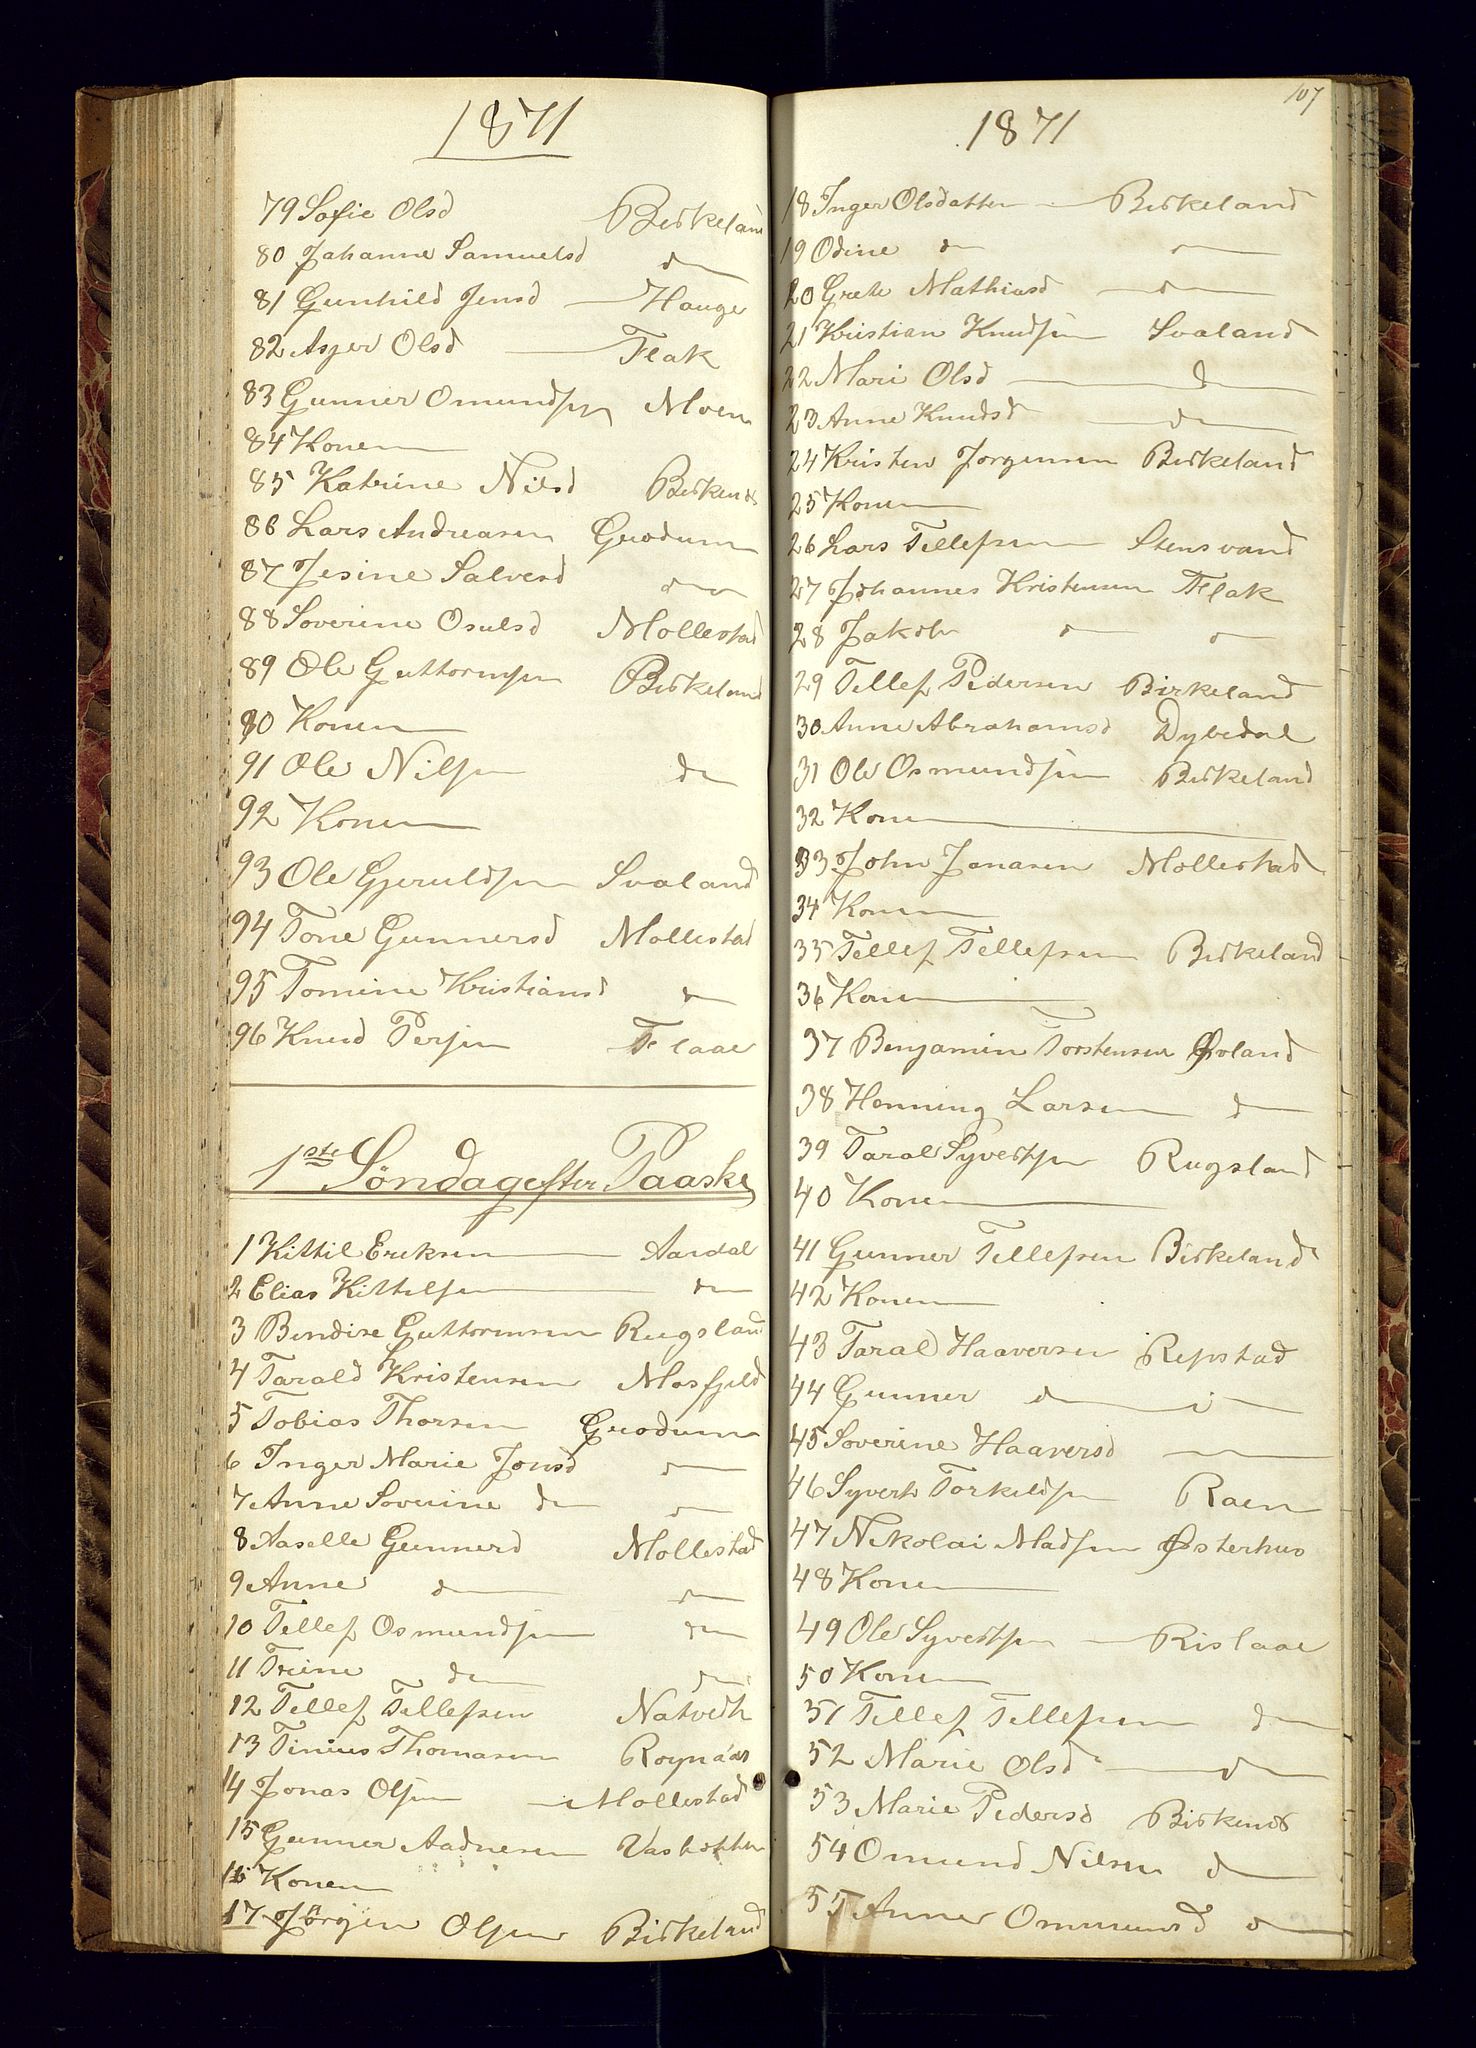 1871
79 Sofie Olsd Birkeland
80 Johanne Samuelsd do
81 Gunhild Jensd Hauge
82 Asger Olsd Flak
83 Gunner Omundsen Moen
84 Konen
85 Katrine Nilsd Birkenes
86 Lars Andreasen Grodum
87 Jesine Salvesd do
88 Soverine Osulsd Mollestad
89 Ole Guttormsen Birkeland
90 Konen
91 Ole Nilsen do
92 Konen
93 Ole Gjeruldsen Svaland
94 Tone Gunnersd Mollestad
95 Tomine Kristiansd do
96 Knud Persen Flaae
1ste Søndag efter Paaske
1 Kittil Eriksen Aardal
2 Elias Kittelsen do
3 Bendixe Guttormsen Rugsland
4 Tarald Kristensen Mosfjeld
5 Tobias Thorsen Grodum
6 Inger Marie Jonsd do
7 Anne Soverine do do
8 Aaselle Gunnerd Mollestad
9 Anne do do
10 Tellef Osmundsen do
11 Trine do do
12 Tellef Tellefsen Natvedt
13 Tinius Thomasen Roynaas
14 Jonas Olsen Mollestad
15 Gunner Aadnesen
16 Konen
17 Jørgen Olsen Birkeland
107
1871
18 Inger Olsdatter Birkeland
19 Odine do do
20 Grete Mathiasd do
21 Kristian Knudsen Svaland
22 Mari Olsd do
23 Anne Knudsd do
24 Kristen Jorgensen Birkeland
25 Konen
26 Lars Tellefsen Stensvand
27 Johannes Kristensen Flak
28 Jakob do do
29 Tellef Pedersen Birkeland
30 Anne Abrahamsd Dybedal
31 Ole Osmundsen Birkeland
32 Konen
33 John Jonasen Mollestad
34 Konen
35 Tellef Tellefsen Birkeland
36 Konen
37 Benjamin Torstensen
38 Henning Larsen do
39 Taral Syvertsen Rugsland
40 Konen
41 Gunner Tellefsen Birkeland
42 Konen
43 Taral Haaversen Repstad
44 Gunner do do
45 Soverine Haaversd do
46 Syvert Torkeldsen Raen
47 Nikolai Madsen Østerhus
48 Konen
49 Ole Syvertsen Rislaae
50 Konen
51 Tellef Tellefsen do
52 Marie Olsd do
53 Marie Pedersd Birkenes
54 Omund Nilsen do
55 Anne Ommunsd do